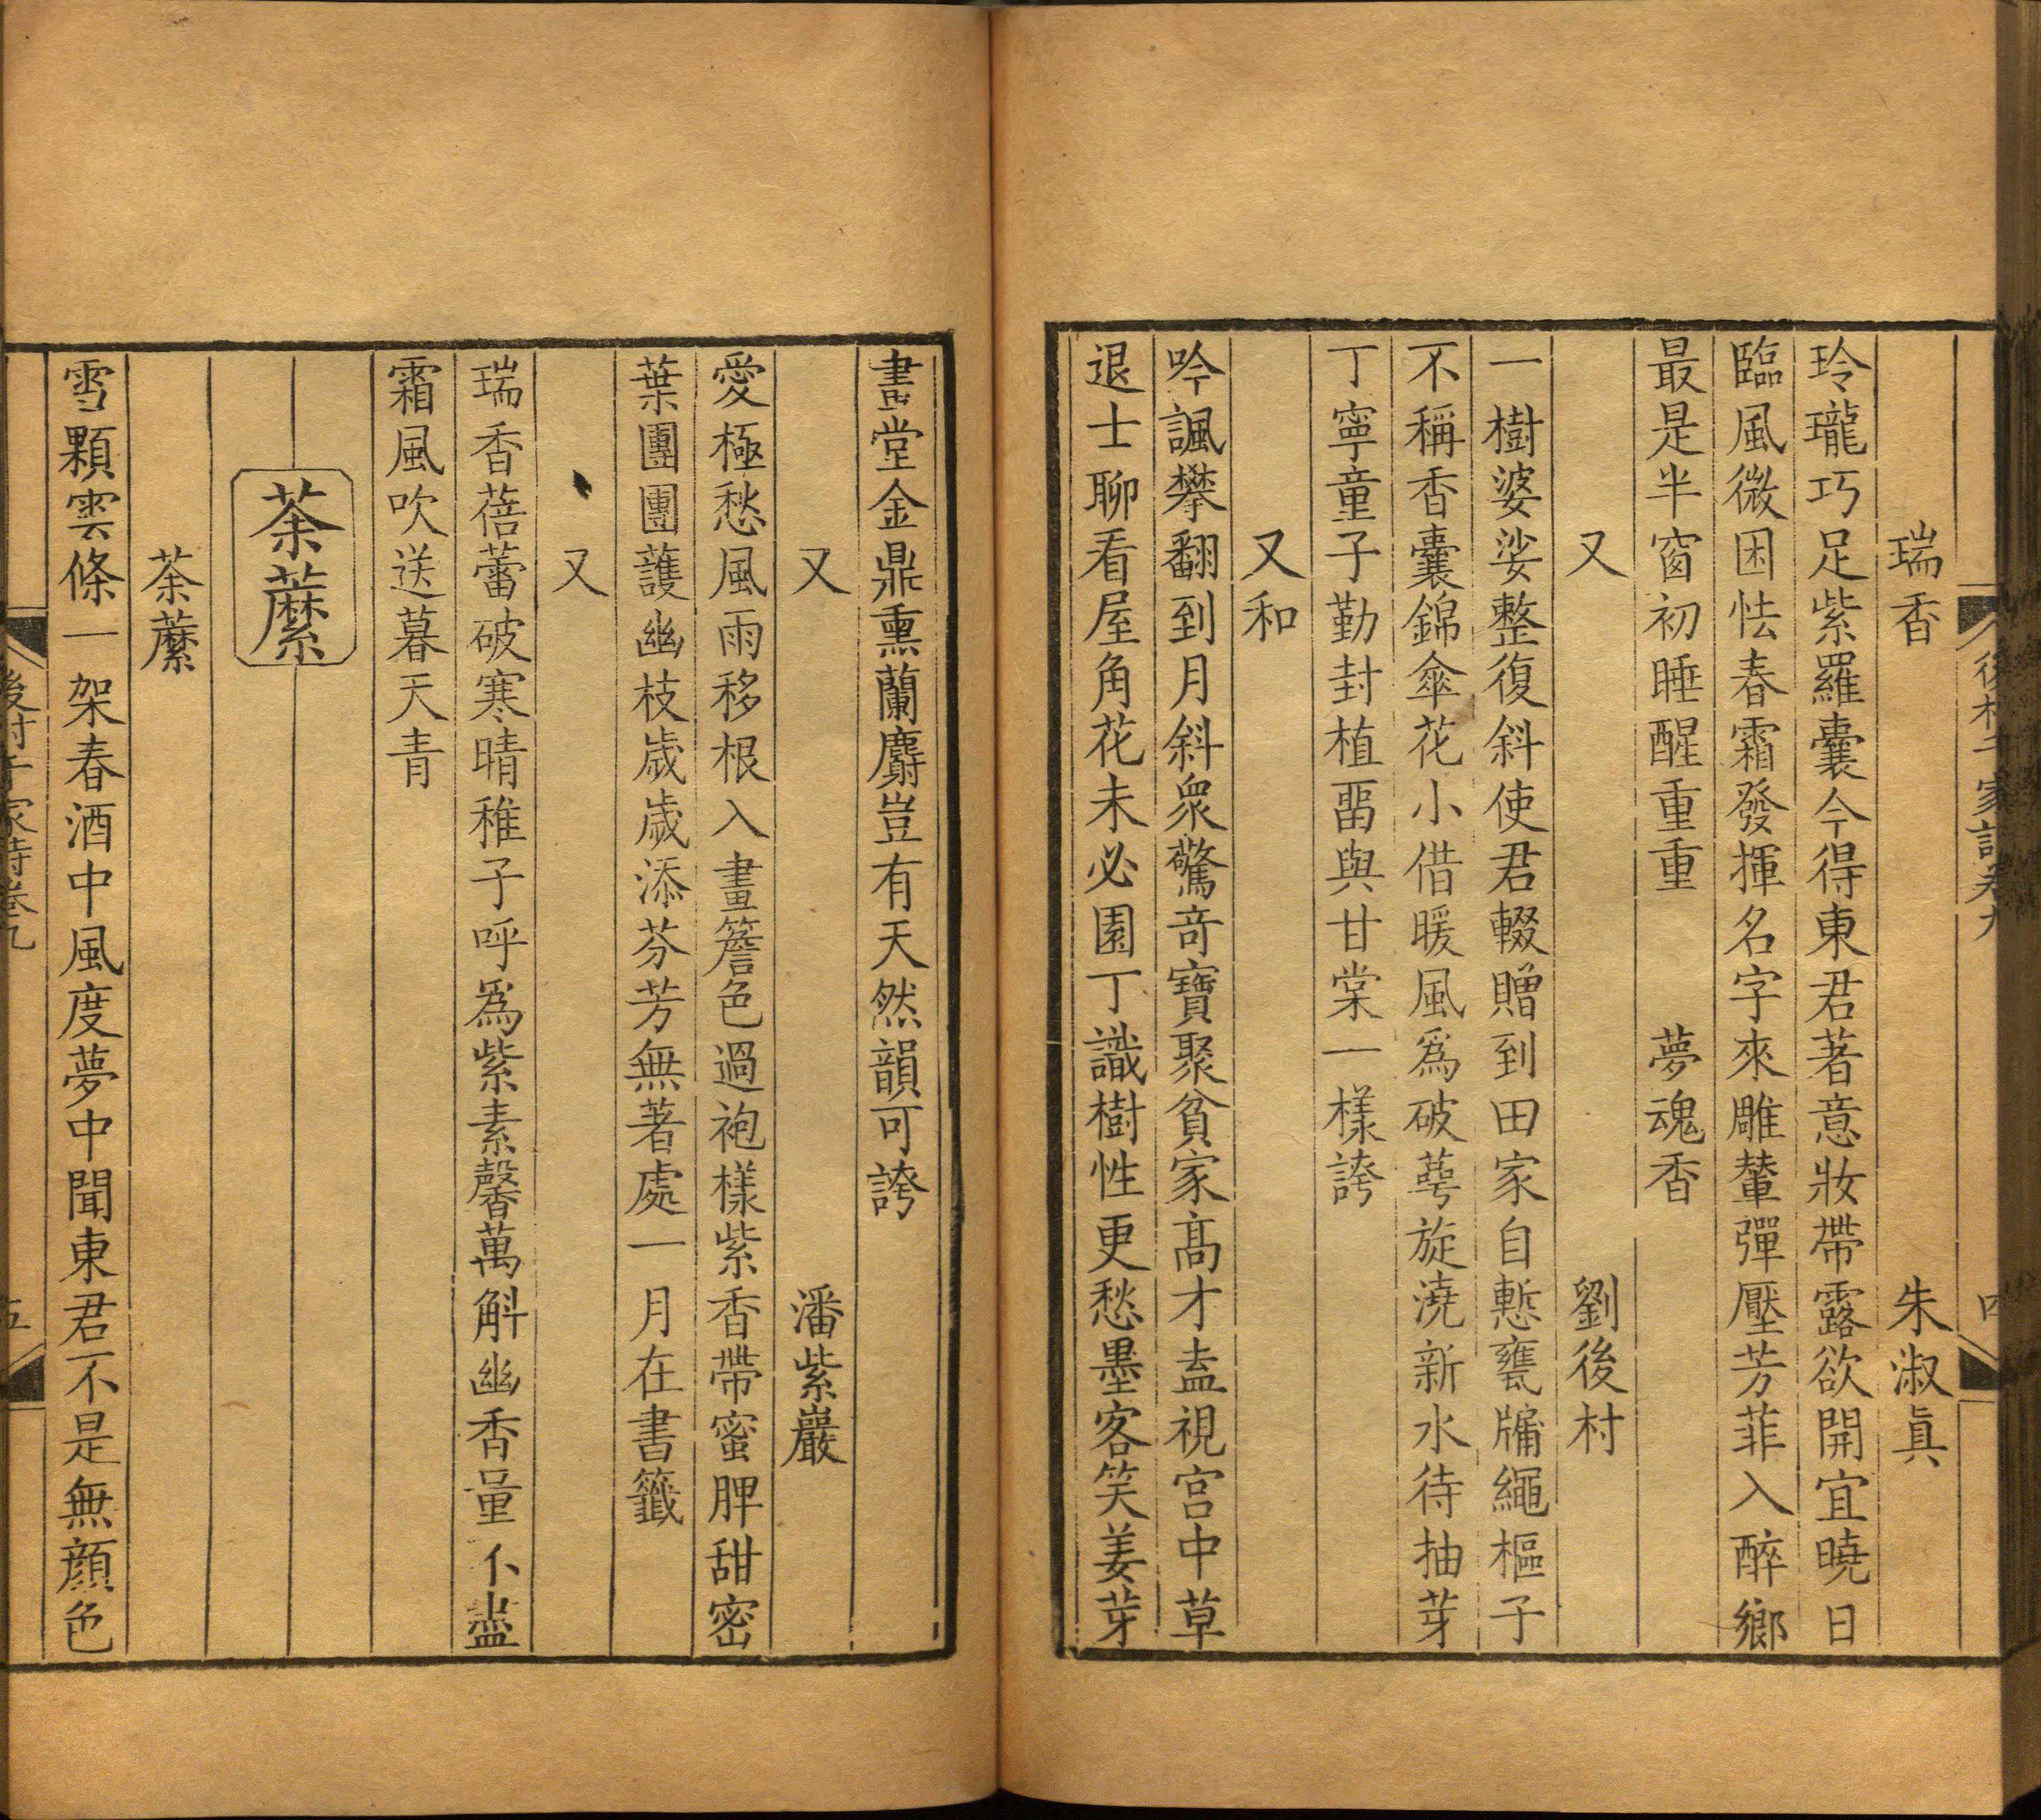 瑞香 朱淑眞
玲瓏巧足紫羅囊今得東君著意妝帶露欲開宜曉日
臨風微困怯春霜發揮名字來雕輦彈壓芳菲入醉鄉
最是半窗初睡醒重重 夢魂香
又 劉後村
一樹婆娑整復斜使君輟贈到田家自慙甕牖繩樞子
不稱香囊錦傘花小借暖風爲破萼旋澆新水待抽芽
丁寧童子勤封植畱與甘棠一樣誇
又和
吟諷攀翻到月斜衆驚竒寶聚貧家髙才盍視宫中草
退士聊看屋角花未必園丁識樹性更愁墨客笑姜芽
畫堂金鼎熏蘭麝豈有天然韻可誇
又 潘紫巖
愛極愁風雨移根入畫簷色過袍樣紫香帶蜜脾甜密
葉團團護幽枝歲歲添芬芳無著處一月在書籤
又
瑞香蓓蕾破寒晴稚子呼爲紫素馨萬斛幽香量不盡
霜風吹送暮天青
荼蘼
荼蘼
雪顆雲條一架春酒中風度夢中聞東君不是無顔色
後村千家詩卷九
五